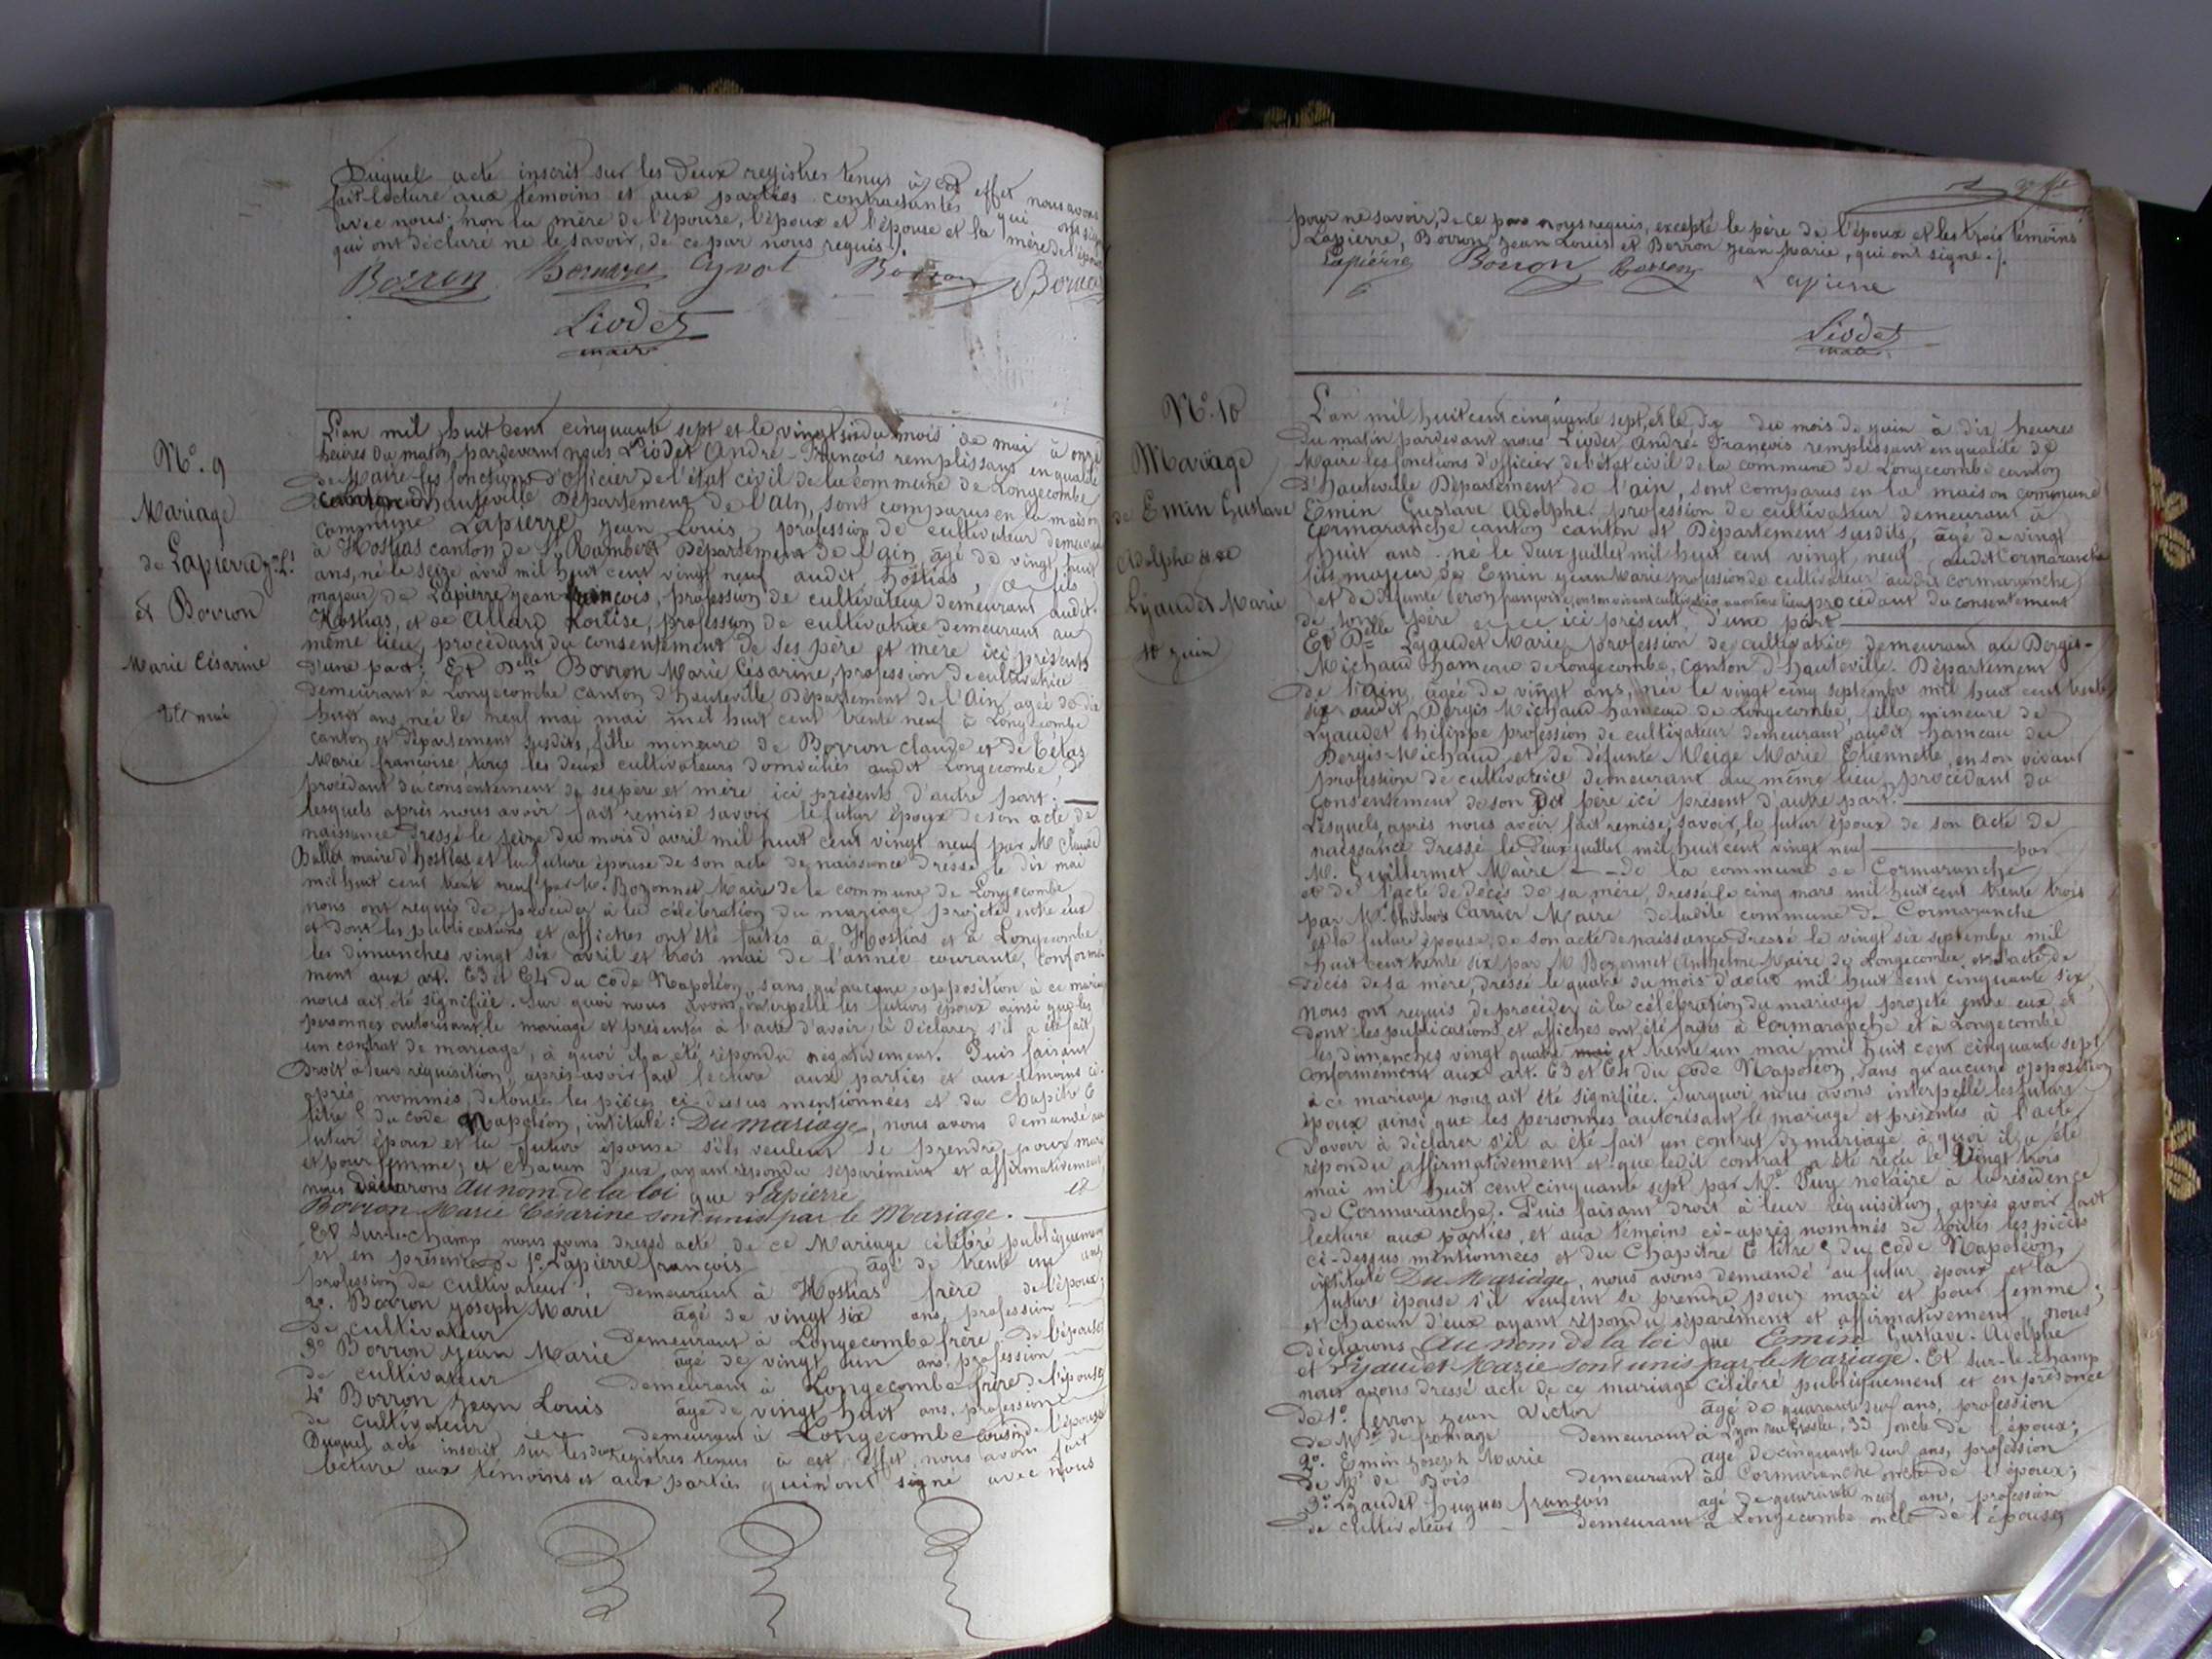 Duquel acte inscrit sur les deux registres tenus à cet effet nous avons
fait lecture aux témoins et aux parties contractantes qui ont signé
avec nous; non la mère de l'épouse, l'époux et l'épouse et la mère de l'époux
qui ont déclaré ne le savoir, de ce par nous requis./.
Borron Cyvot Borron
Liodet
maire
N°. 9
Mariage
de Lapierre Jn Ls
et Borron
Marie Césarine
26 mai
L'an mil huit cent cinquante sept et le vingt six du mois de mai à onze
heures du matin pardevant nous Liodet André-François remplissant en qualité
de Maire les fonctions d'officier de l'état civil de la commune de Longecombe
canton d'hauteville Département de l'ain, sont comparus en la maison
commune Lapierre Jean Louis, profession de cultivateur demeurant
à Hostias canton de St Rambert Département de l'ain âgé de vingt huit
ans, né le seize avril mil huit cent vingt neuf audit hostias, fils
majeur de Lapierre jean françois, profession de cultivateur demeurant audit
Hostias, et de Allard profession de cultivatrice demeurant au
même lieu, procédant du consentement de ses père et mère ici présents
d'une part; Et Delle Borron Marie Césarine, profession de cultivatrice
demeurant à Longecombe canton d'hauteville Département de l'Ain, agée de dix
huit ans, née le neuf mai mai mil huit cent trente neuf à Longecombe
canton et département susdits, fille mineure de Borron claude et de
Marie françoise, tous les deux cultivateurs domiciliés audit Longecombe,
procédant du consentement de ses père et mère ici présents d'autre part.
lesquels après nous avoir fait remise savoir le futur époux de son acte de
naissance dressé le seize du mois d'avril mil huit cent vingt neuf par Mr Claude
Ballet maire d'hostias et la future épouse de son acte de naissance dressé le dix mai
mil huit cent trente neuf par Mr. Bozonnet Maire de la commune de Longecombe
nous ont requis de procéder à la célébration du mariage projeté entre eux
et dont les publications et affiches ont été faites à Hostias et à Longecombe
les dimanches vingt six avril et trois mai de l'année courante, conformé-
ment aux art. 63 et 64 du code Napoléon, sans qu'aucune opposition à ce mariage
nous ait été signifiée. Sur quoi nous avons interpellé les futurs époux ainsi que les
personnes autorisant le mariage et présentes à l'acte d'avoir à déclarer s'il a été fait
un contrat de mariage, à quoi il a été répondu négativement. Puis faisant
droit à leur réquisition, après avoir fait lecture aux parties et aux témoins ci-
après nommés, de toutes les pièces ci-dessus mentionnées et du chapitre 6
titre 5 du code Napoléon, intitulé: Du mariage, nous avons demandé au
futur époux et la future épouse s'ils veulent se prendre pour mari
et pour femme; et chacun d'eux ayant répondu séparément et affirmativement
nous déclarons au nom de la loi que Lapierre et
Borron Marie Césarine sont unis par le Mariage.
Et Sur-le-champ nous avons dressé acte de ce Mariage célébré publiquement
et en présence de 1° Lapierre françois âgé de trente un ans
profession de cultivateur demeurant à Hostias frère de l'époux;
2°. Borron Joseph Marie âgé de vingt six ans, profession
de cultivateur demeurant à Longecombe frère de l'épouse
3° Borron Jean Marie âgé de vingt un ans, profession
de cultivateur demeurant à Longecombe frère de l'épouse
4° Borron Jean Louis âgé de vingt huit ans, profession
de cultivateur demeurant à Longecombe cousin de l'épouse
Duquel acte inscrit sur les dts registres tenus à cet effet, nous avons fait
lecture aux témoins et aux parties qui n'ont signé avec nous
pour ne savoir, de ce par nous requis, excepté le père de l'époux et les trois témoins
Lapierre, Borron Jean Louis et Borron Jean Marie, qui ont signé./.
Lapierre Borron Borron Lapierre
Liodet
maire
N°. 10
Mariage
de Emin Gustave
Adolphe &
Lyaudet Marie
10 juin
L'an mil huit cent cinquante sept, et le dix du mois de juin à dix heures
du matin pardevant nous Liodet André François remplissant en qualité de
Maire les fonctions d'officier de l'état civil de la commune de Longecombe canton
d'hauteville Département de l'ain, sont comparus en la maison commune
Emin Gustave Adolphe profession de cultivateur demeurant à
Cormaranche canton canton et Département susdits, âgé de vingt
huit ans né le deux juillet mil huit cent vingt neuf audit Cormaranche
fils majeur de Emin Jean Marie profession de cultivateur audit cormaranche
et de défunte françoise, en son vivant cultivatrice au même lieu, procédant du consentement
de son père ici présent, d'une part
Et Delle Lyaudet Marie, profession de cultivatrice demeurant au Dergis-
Michaud hameau de Longecombe, canton d'hauteville. Département
de l'Ain, âgée de vingt ans, née le vingt cinq septembre mil huit cent trente
six audit Dergis Michaud hameau de Longecombe, fille mineure de
Lyaudet Philippe profession de cultivateur demeurant audit hameau du
Dergis-Michaud, et de défunte Meige Marie Etiennette, en son vivant
profession de cultivatrice demeurant au même lieu, procédant du
consentement de son dit père ici présent d'autre part.
Lesquels, après nous avoir fait remise, savoir, le futur époux de son acte de
naissance dressé le deux juillet mil huit cent vingt neuf par
M. Guillermet Maire de la commune de Cormaranche
et de l'acte de décès de sa mère, dressé le cinq mars mil huit cent trente trois
par Mr. Philibert Carrier Maire de ladite commune de Cormaranche
et la future épouse, de son acte de naissance dressé le vingt six septembre mil
huit cent trente six par M Bozonnet Anthelme Maire de Longecombe et de l'acte de
décès de sa mère, dressé le quatre du mois d'aout mil huit cent cinquante six,
nous ont requis de procéder à la célébration du mariage projeté entre eux et
dont les publications et affiches ont été faites à Cormaranche et à Longecombe
les dimanches vingt quatre mai et trente un mai mil huit cent cinquante sept
conformément aux art. 63 et 64 du Code Napoléon, sans qu'aucune opposition
à ce mariage nous ait été signifiée. Sur quoi nous avons interpellé les futurs
époux ainsi que les personnes autorisant le mariage et présentes à l'acte
d'avoir à déclarer s'il a été fait un contrat de mariage, à quoi il a été
répondu affirmativement et que ledit contrat a été reçu le vingt trois
mai mil huit cent cinquante sept par Mr. Puy notaire à la résidence
de Cormaranche. Puis faisant droit à leur réquisition, après avoir fait
lecture aux parties, et aux témoins ci-après nommés de toutes les pièces
ci-dessus mentionnées et du Chapitre 6 titre 5 du code Napoléon,
intitulé Du Mariage, nous avons demandé au futur époux et la
future épouse s'il veulent se prendre pour mari et pour femme;
et chacun d'eux ayant répondu séparément et affirmativement, nous
déclarons au nom de la loi que Emin Gustave-Adolphe
et Lyaudet Marie sont unis par le Mariage. Et sur-le-champ
nous avons dressé acte de ce mariage célébré publiquement et en présence
de 1°. Jean Victor âgé de quarante ans, profession
de Md de fromage demeurant à Lyon rue Grolée, 33 oncle de l'époux;
2°. Emin Joseph Marie âgé de cinquante deux ans, profession
de Md de Bois demeurant à Cormaranche oncle de l'époux;
3° Lyaudet hugues françois âgé de quarante neuf ans, profession
de cultivateur demeurant à Longecombe oncle de l'épouse